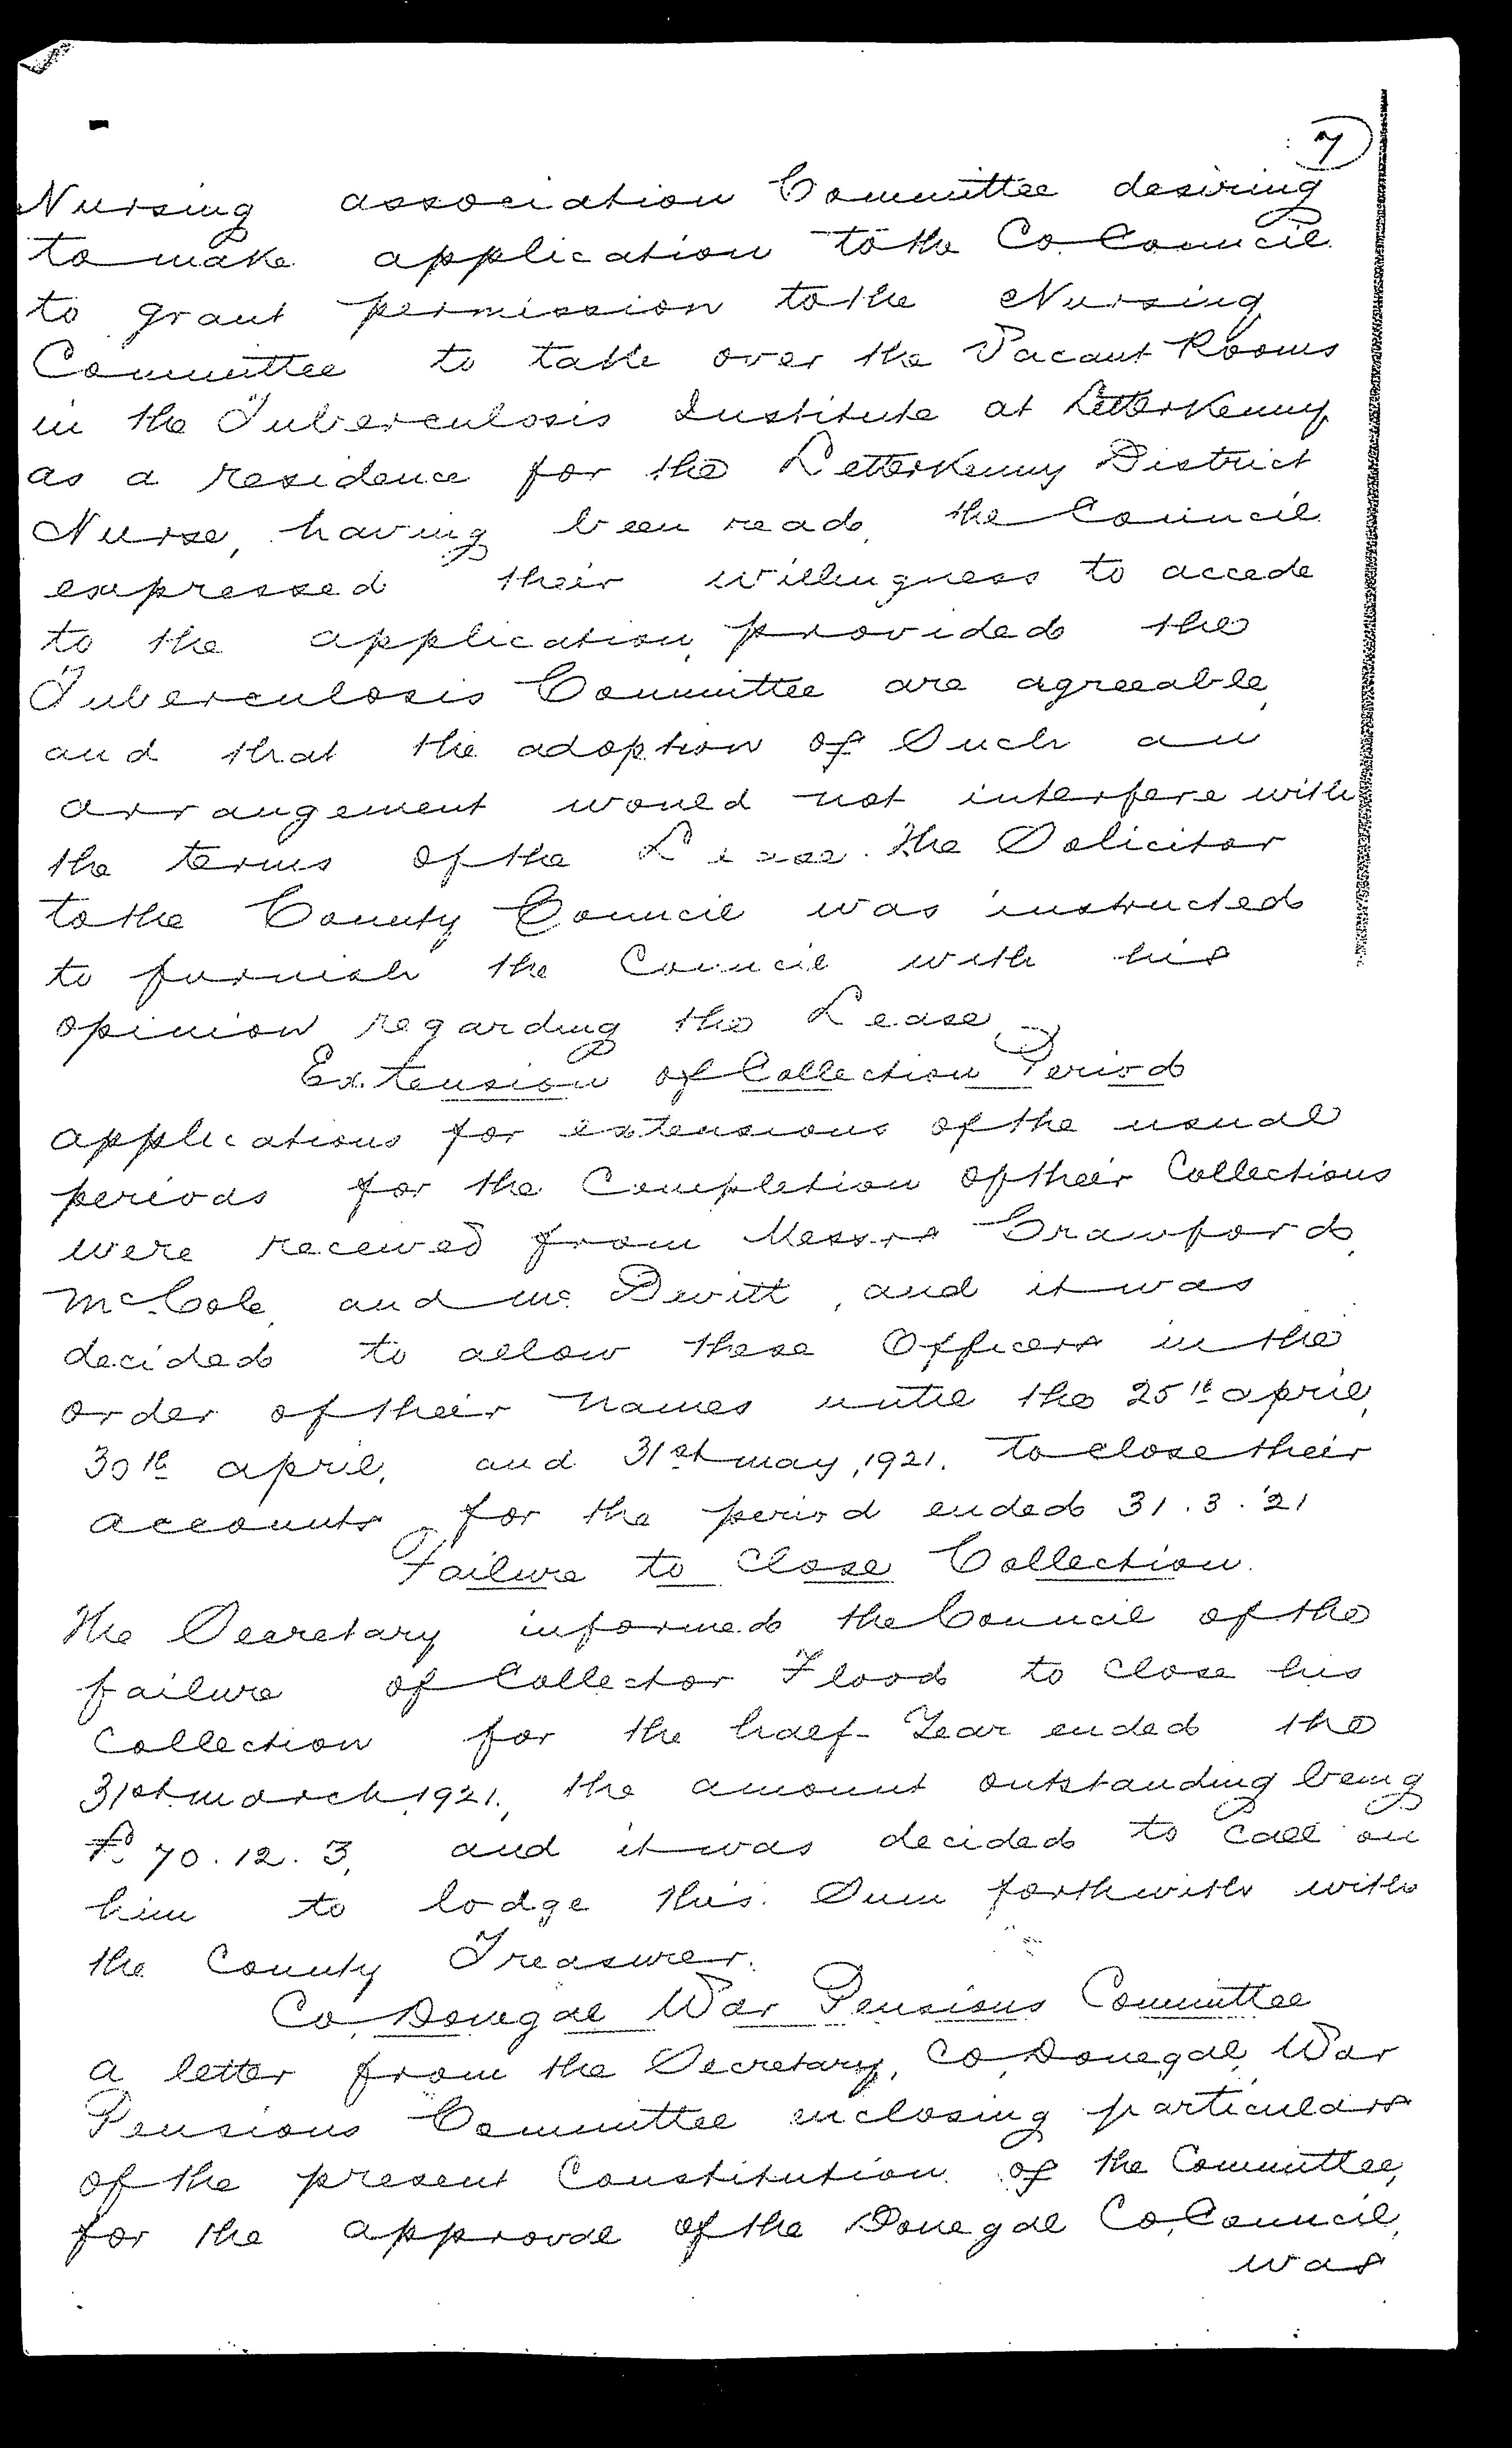 7
Nursing association Committee desiring
to make application to the Co. Council
to grant permission to the Nursing
Committee to take over the Vacant Rooms
in the Tuberculosis Institute at Letterkenny
as a residence for the Letterkenny District
Nurse, having been read, the Council
expressed their willingness to accede
to the application, provided the
Tuberculosis Committee are agreeable,
and that the adoption of Such an
arrangement would not interfere with
the terms of the Lease. The Solicitor
to the County Council was instructed
to furnish the Council with his
opinion regarding the Lease.
Extension of Collection Period
applications for extensions of the usual
periods for the Completion of their Collections
were received from Messrs Crawford,
McCole, and Mc Devitt, and it was
decided to allow these Officers in the
order of their names until the 25th april,
30th april, and 31st may, 1921. to close their
accounts for the period ended 31.3.'21
Failure to Close Collection.
The Secretary informed the Council of the
failure of Collector Flood to Close his
Collection for the half-Year ended the
31st march, 1921., the amount outstanding being
£ 70.12.3, and it was decided to Call on
him to lodge this Sum forthwith with
the County Treasurer.
Co. Donegal War Pensions Committee
a letter from the Secretary, Co. Donegal War
Pensions Committee enclosing particulars
of the present Constitution of the Committee,
for the approval of the Donegal Co. Council,
was